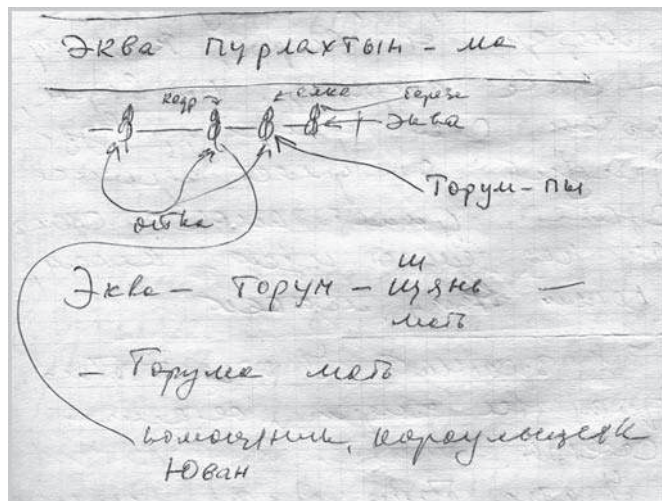 Эква пурлахтын - ма
кедр елка береза
Эква
Торум-пы
ойка
Эква - Торум - щянь -
Щ
мать
- Торума мать
помощник, караульщик
Юван